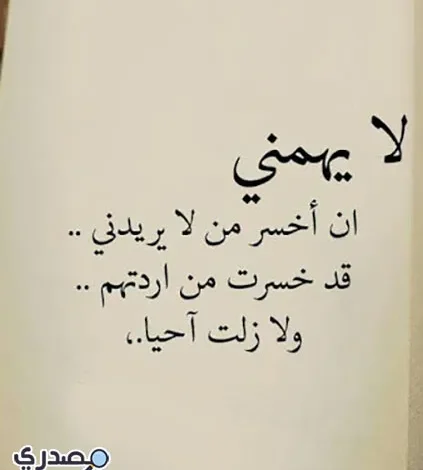 لا يهمني
ان أخسر من لا يريدني ..
قد خسرت من اردتهم ..
ولا زلت آحيا.،
مصدري